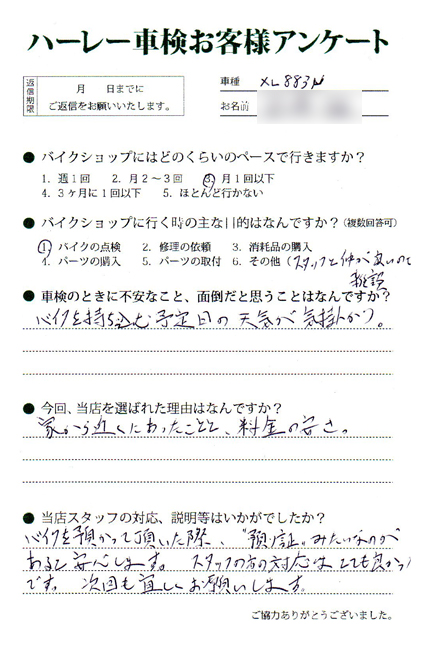 ハーレー車検お客様アンケート
返信期限
月 日までに
ご返信をお願いいたします。
車種 XL883N
お名前
● バイクショップにはどのくらいのペースで行きますか？
1. 週1回 2. 月2〜3回 3. 月1回以下
4. 3ヶ月に1回以下 5. ほとんど行かない
● バイクショップに行く時の主な目的はなんですか？（複数回答可）
1. バイクの点検 2. 修理の依頼 3. 消耗品の購入
4. パーツの購入 5. パーツの取付 6. その他（スタッフと仲が良いので
雑談
● 車検のときに不安なこと、面倒だと思うことはなんですか？
バイクを持ち込む予定日の天気が気掛かり。
● 今回、当店を選ばれた理由はなんですか？
家から近くにあったことと、料金の安さ。
● 当店スタッフの対応、説明等はいかがでしたか？
バイクを預かって頂いた際、"預り証"みたいなのが
あると安心します。スタッフの方の対応はとても良かった
です。次回も宜しくお願いします。
ご協力ありがとうございました。